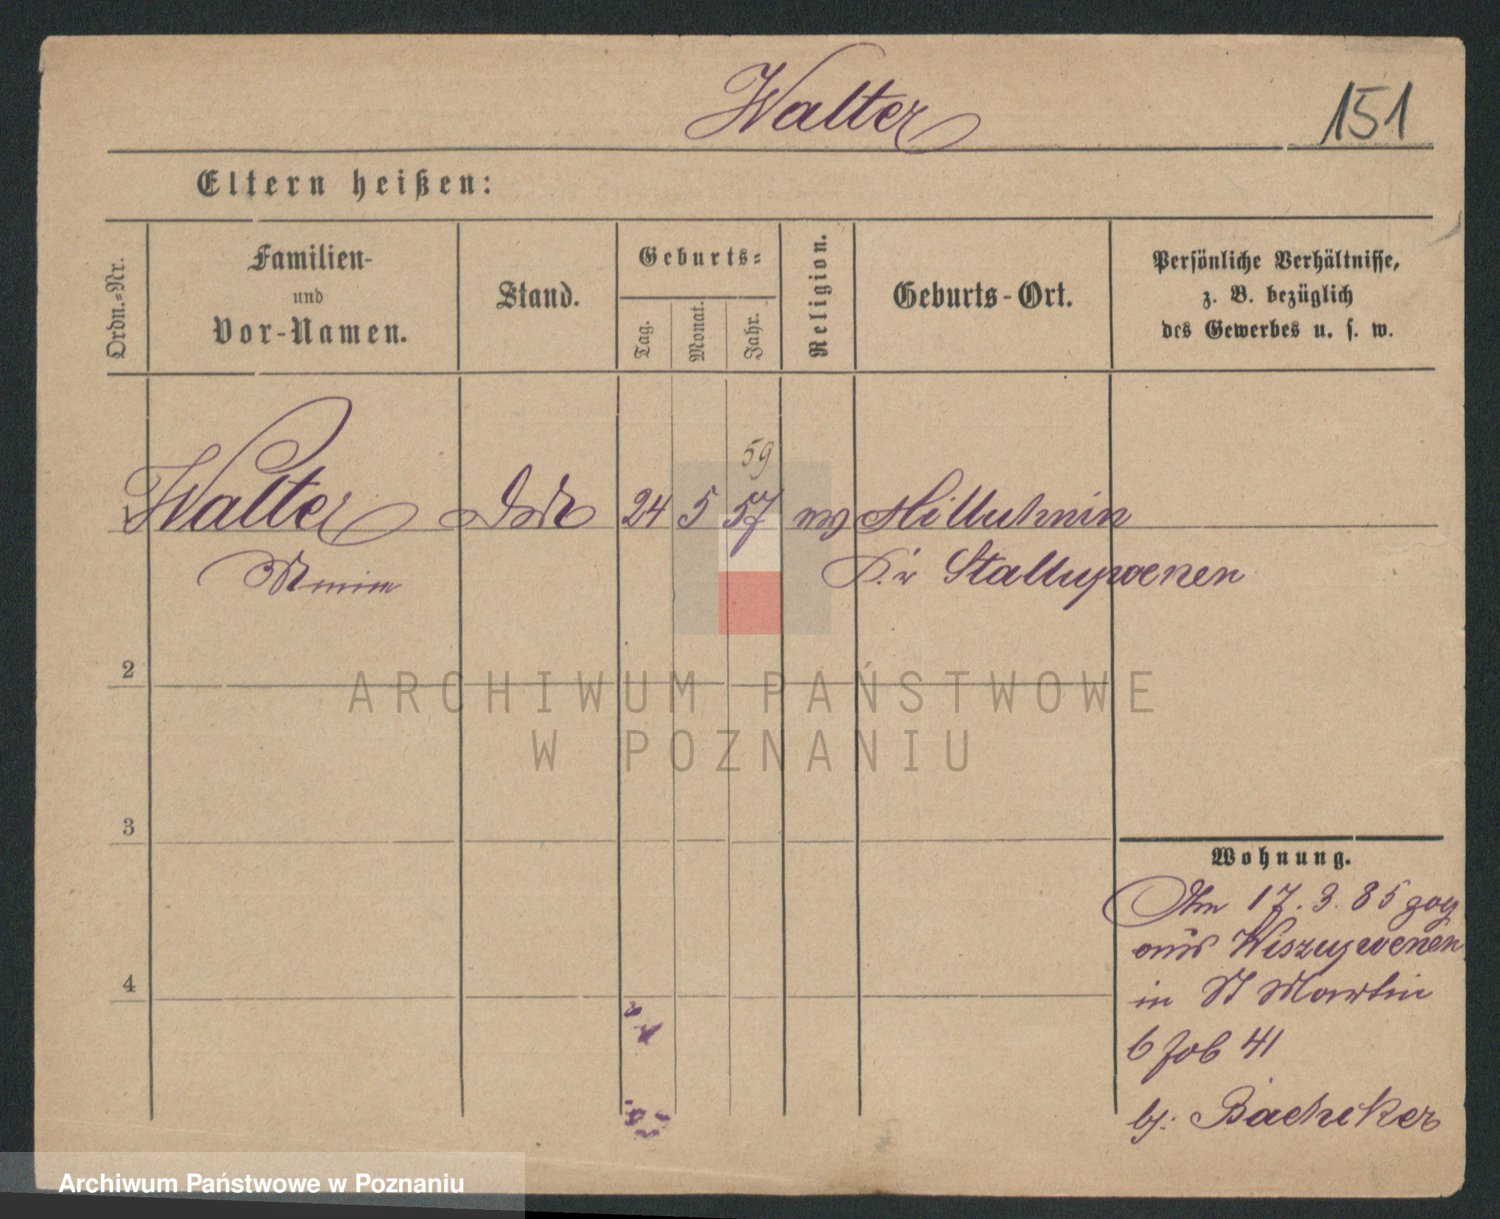 Walter 151
Eltern heißen:
Ordn.-Nr.
Familien-
und
Vor-Namen.
Stand.
Geburts-
Tag.
Monat.
Jahr.
Religion.
Geburts-Ort.
Persönliche Verhältnisse,
z. B. bezüglich
des Gewerbes u. s. w.
59
1 Walter 24 5 57
Stallupoenen
2
ARCHIWUM PAŃSTWOWE
W POZNANIU
3
Wohnung.
Am 17. 3. 85 zog
aus Wiszupoenen
4
in St Martin
41
Archiwum Państwowe w Poznaniu